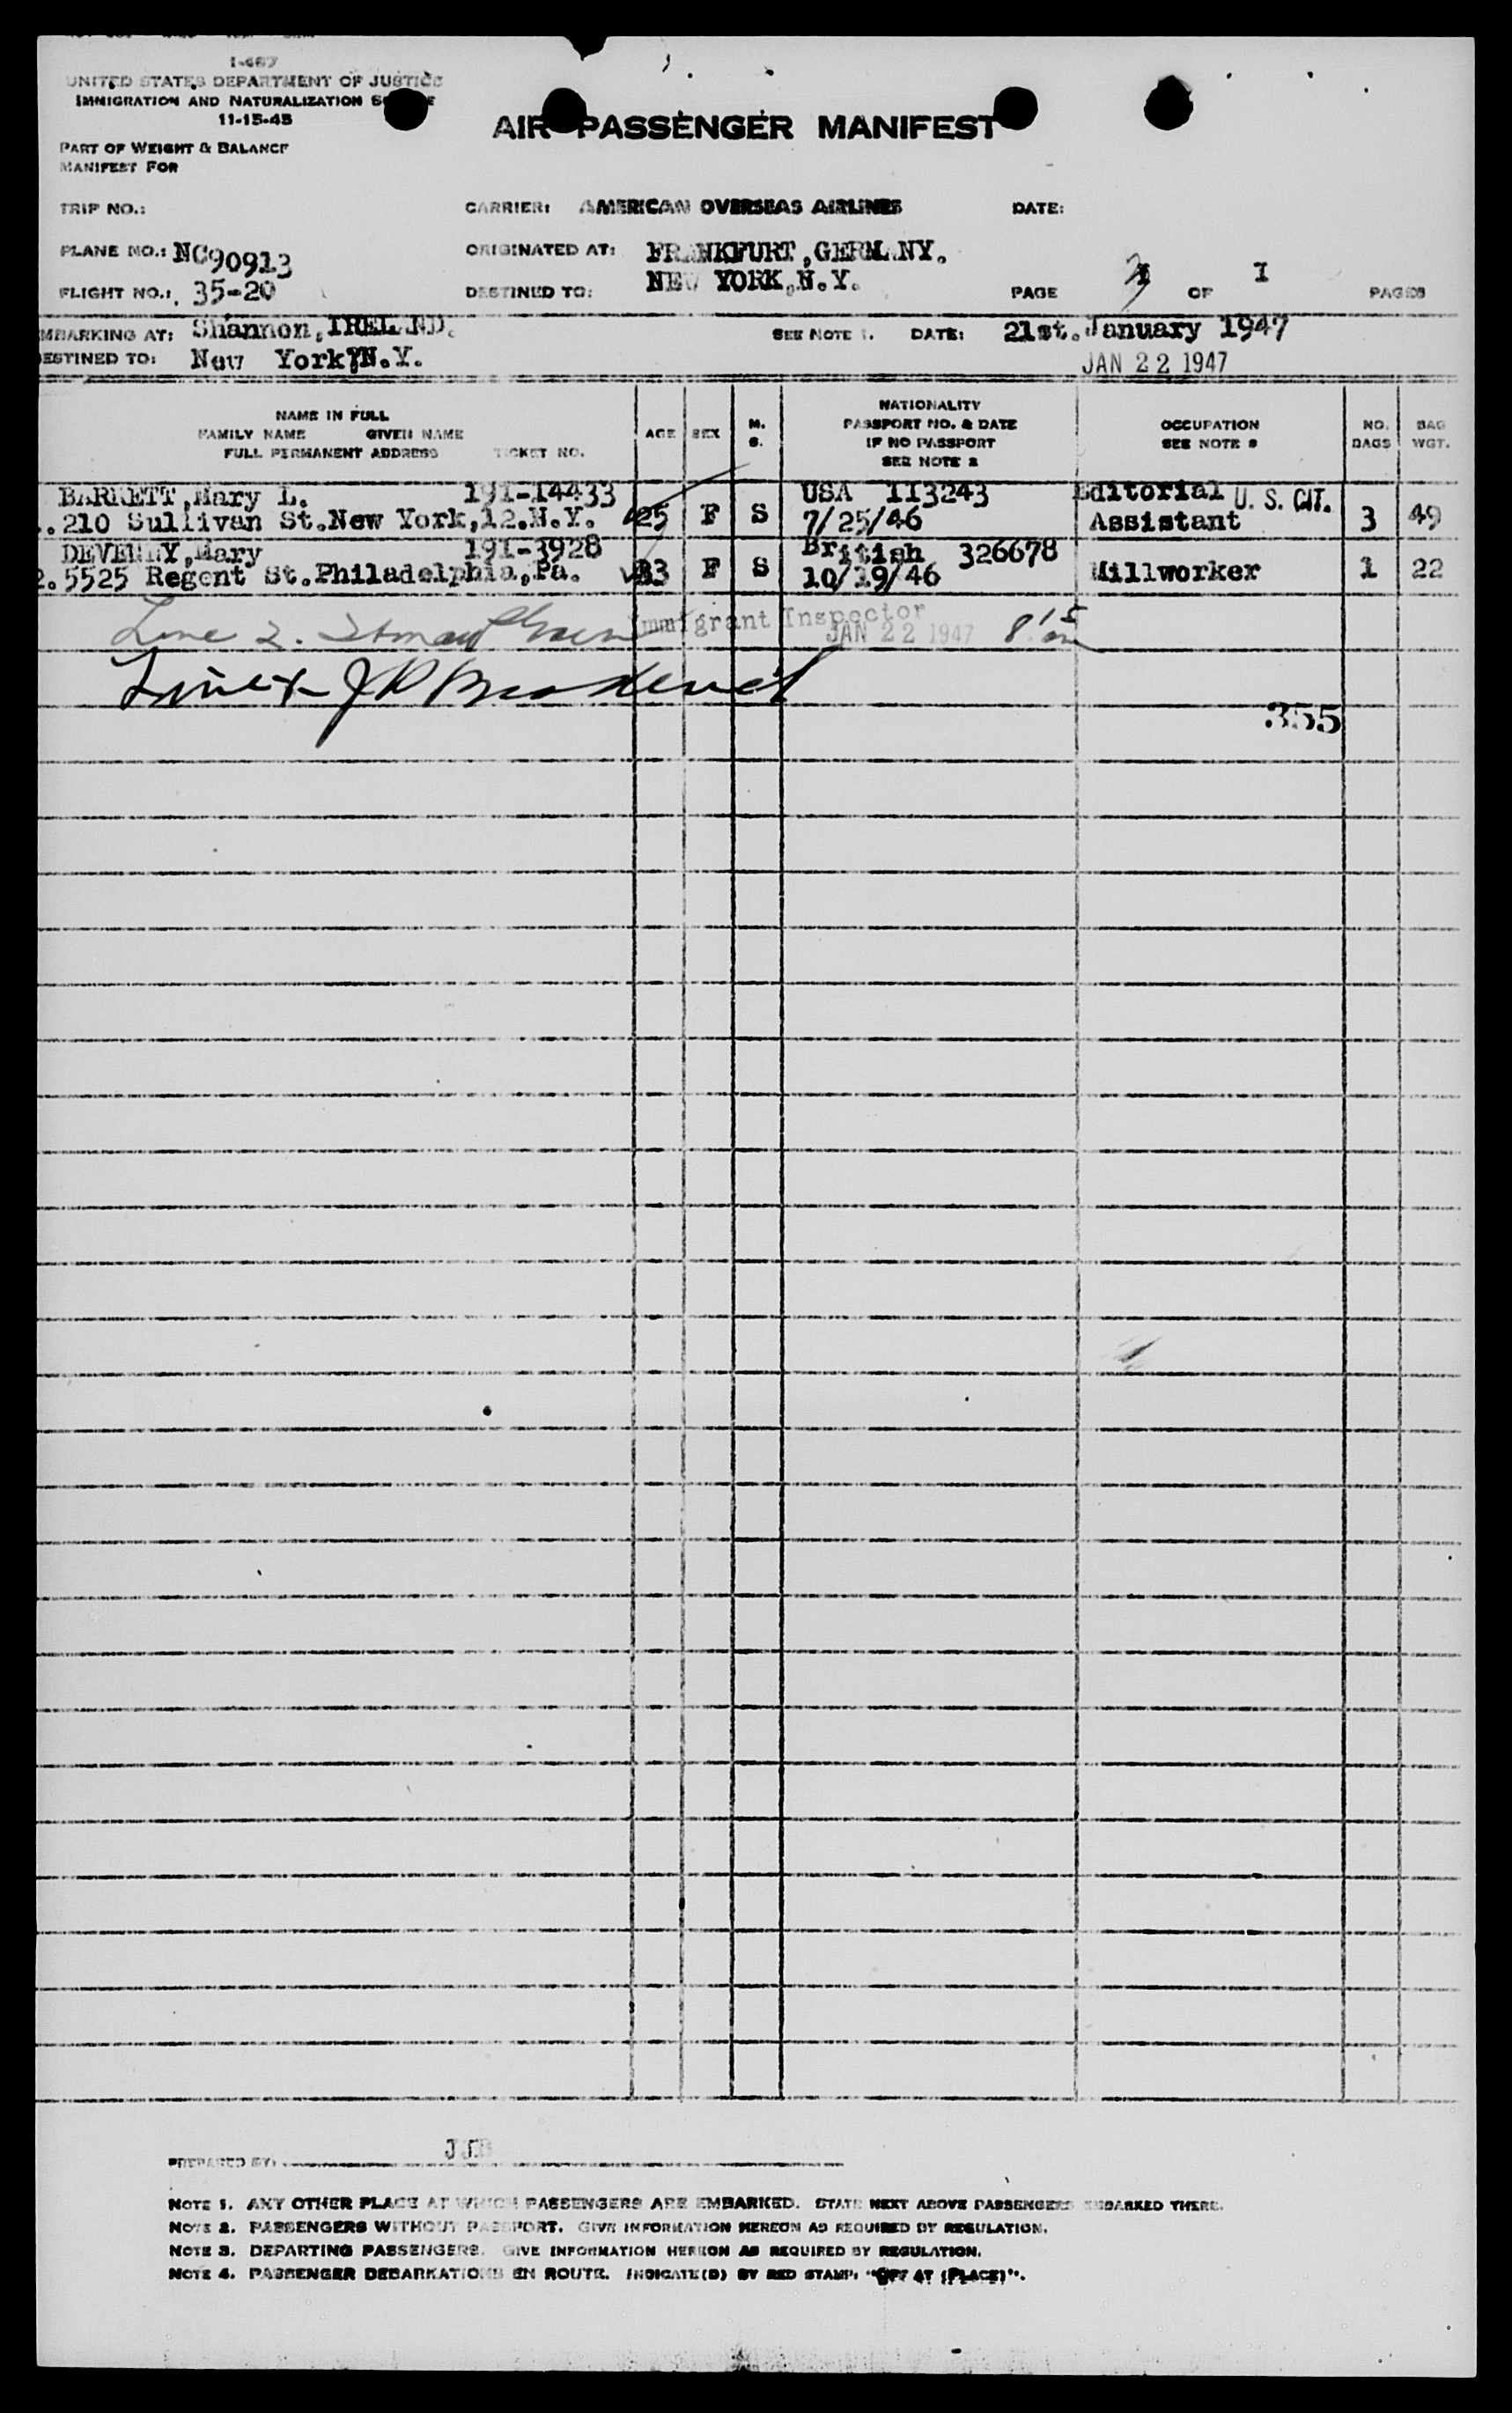 I-467
UNITED STATES DEPARTMENT OF JUSTICE
IMMIGRATION AND NATURALIZATION
11-15-45
AIR PASSENGER MANIFEST
PART OF WEIGHT & BALANCE
MANIFEST FOR
TRIP NO.: CARRIER: AMERICAN OVERSEAS AIRLINES DATE:
PLANE NO.: NC90913 ORIGINATED AT: FRANKFURT, GERMANY.
FLIGHT NO.: 35-20 DESTINED TO: NEW YORK, N.Y. PAGE OF I PAGES
EMBARKING AT: Shannon, IRELAND. SEE NOTE 1. DATE: 21st. January 1947
DESTINED TO: New York, N.Y. JAN 22 1947
NAME IN FULL
FAMILY NAME GIVEN NAME
FULL PERMANENT ADDRESS TICKET NO. AGE SEX M. S. NATIONALITY PASSPORT NO. & DATE IF NO PASSPORT SEE NOTE 2 OCCUPATION SEE NOTE 3 NO. BAGS BAG WGT.
BARRETT, Mary L. 191-14433 USA 113243 Editorial U. S. CIT.
210 Sullivan St. New York, 12. N.Y. 25 F S 7/25/46 Assistant 3 49
DEVENNY, Mary 191-3928 British 326678
2. 5525 Regent St. Philadelphia, Pa. 33 F S 10/19/46 Millworker 1 22
Line 2. Immigrant Inspector JAN 22 1947
Line 1
355
PREPARED BY:
NOTE 1. ANY OTHER PLACE AT WHICH PASSENGERS ARE EMBARKED. STATE NEXT ABOVE PASSENGERS EMBARKED THERE.
NOTE 2. PASSENGERS WITHOUT PASSPORT. GIVE INFORMATION HEREON AS REQUIRED BY REGULATION.
NOTE 3. DEPARTING PASSENGERS. GIVE INFORMATION HEREON AS REQUIRED BY REGULATION.
NOTE 4. PASSENGER DEBARKATIONS EN ROUTE. INDICATE(D) BY RED STAMP: "OFF AT (PLACE)".